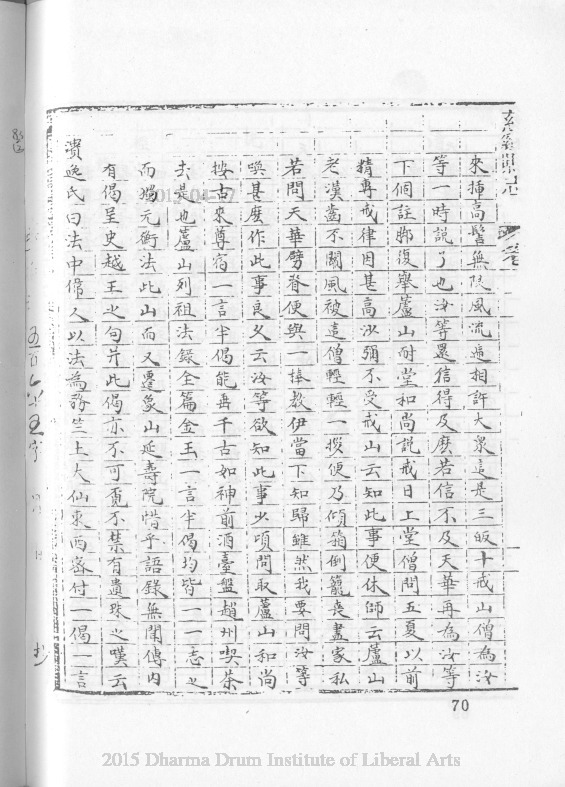 來插高髻無限風流遞相許大眾這是三皈十戒山僧為汝
等一時說了也汝等還信得及麽若信不及天華再為汝等
下個註脚復舉蘆山耐堂和尚說戒日上堂僧問五夏以前
精專戒律因甚高沙彌不受戒山云知此事便休師云蘆山
老漢齒不關風被這僧輕輕一拶便乃傾箱倒籠喪盡家私
若問天華劈脊便與一棒教伊當下知歸雖然我要問汝等
喚甚麽作此事良久云汝等欲知此事少頃問取蘆山和尚
按古來尊宿一言半偈能垂千古如神前酒臺盤趙州喫茶
去是也蘆山列祖法錄全篇金玉一言半偈均皆一一志之
而獨元衡法此山而又遷象山延壽院惜乎語錄無聞傳內
有偈呈史越王之句片此偈亦不可覓不禁有遺珠之嘆云
潰逸氏曰法中偉人以法為務竺土大仙東西密付一偈一言
70
2015 Dharma Drum Institute of Liberal Arts